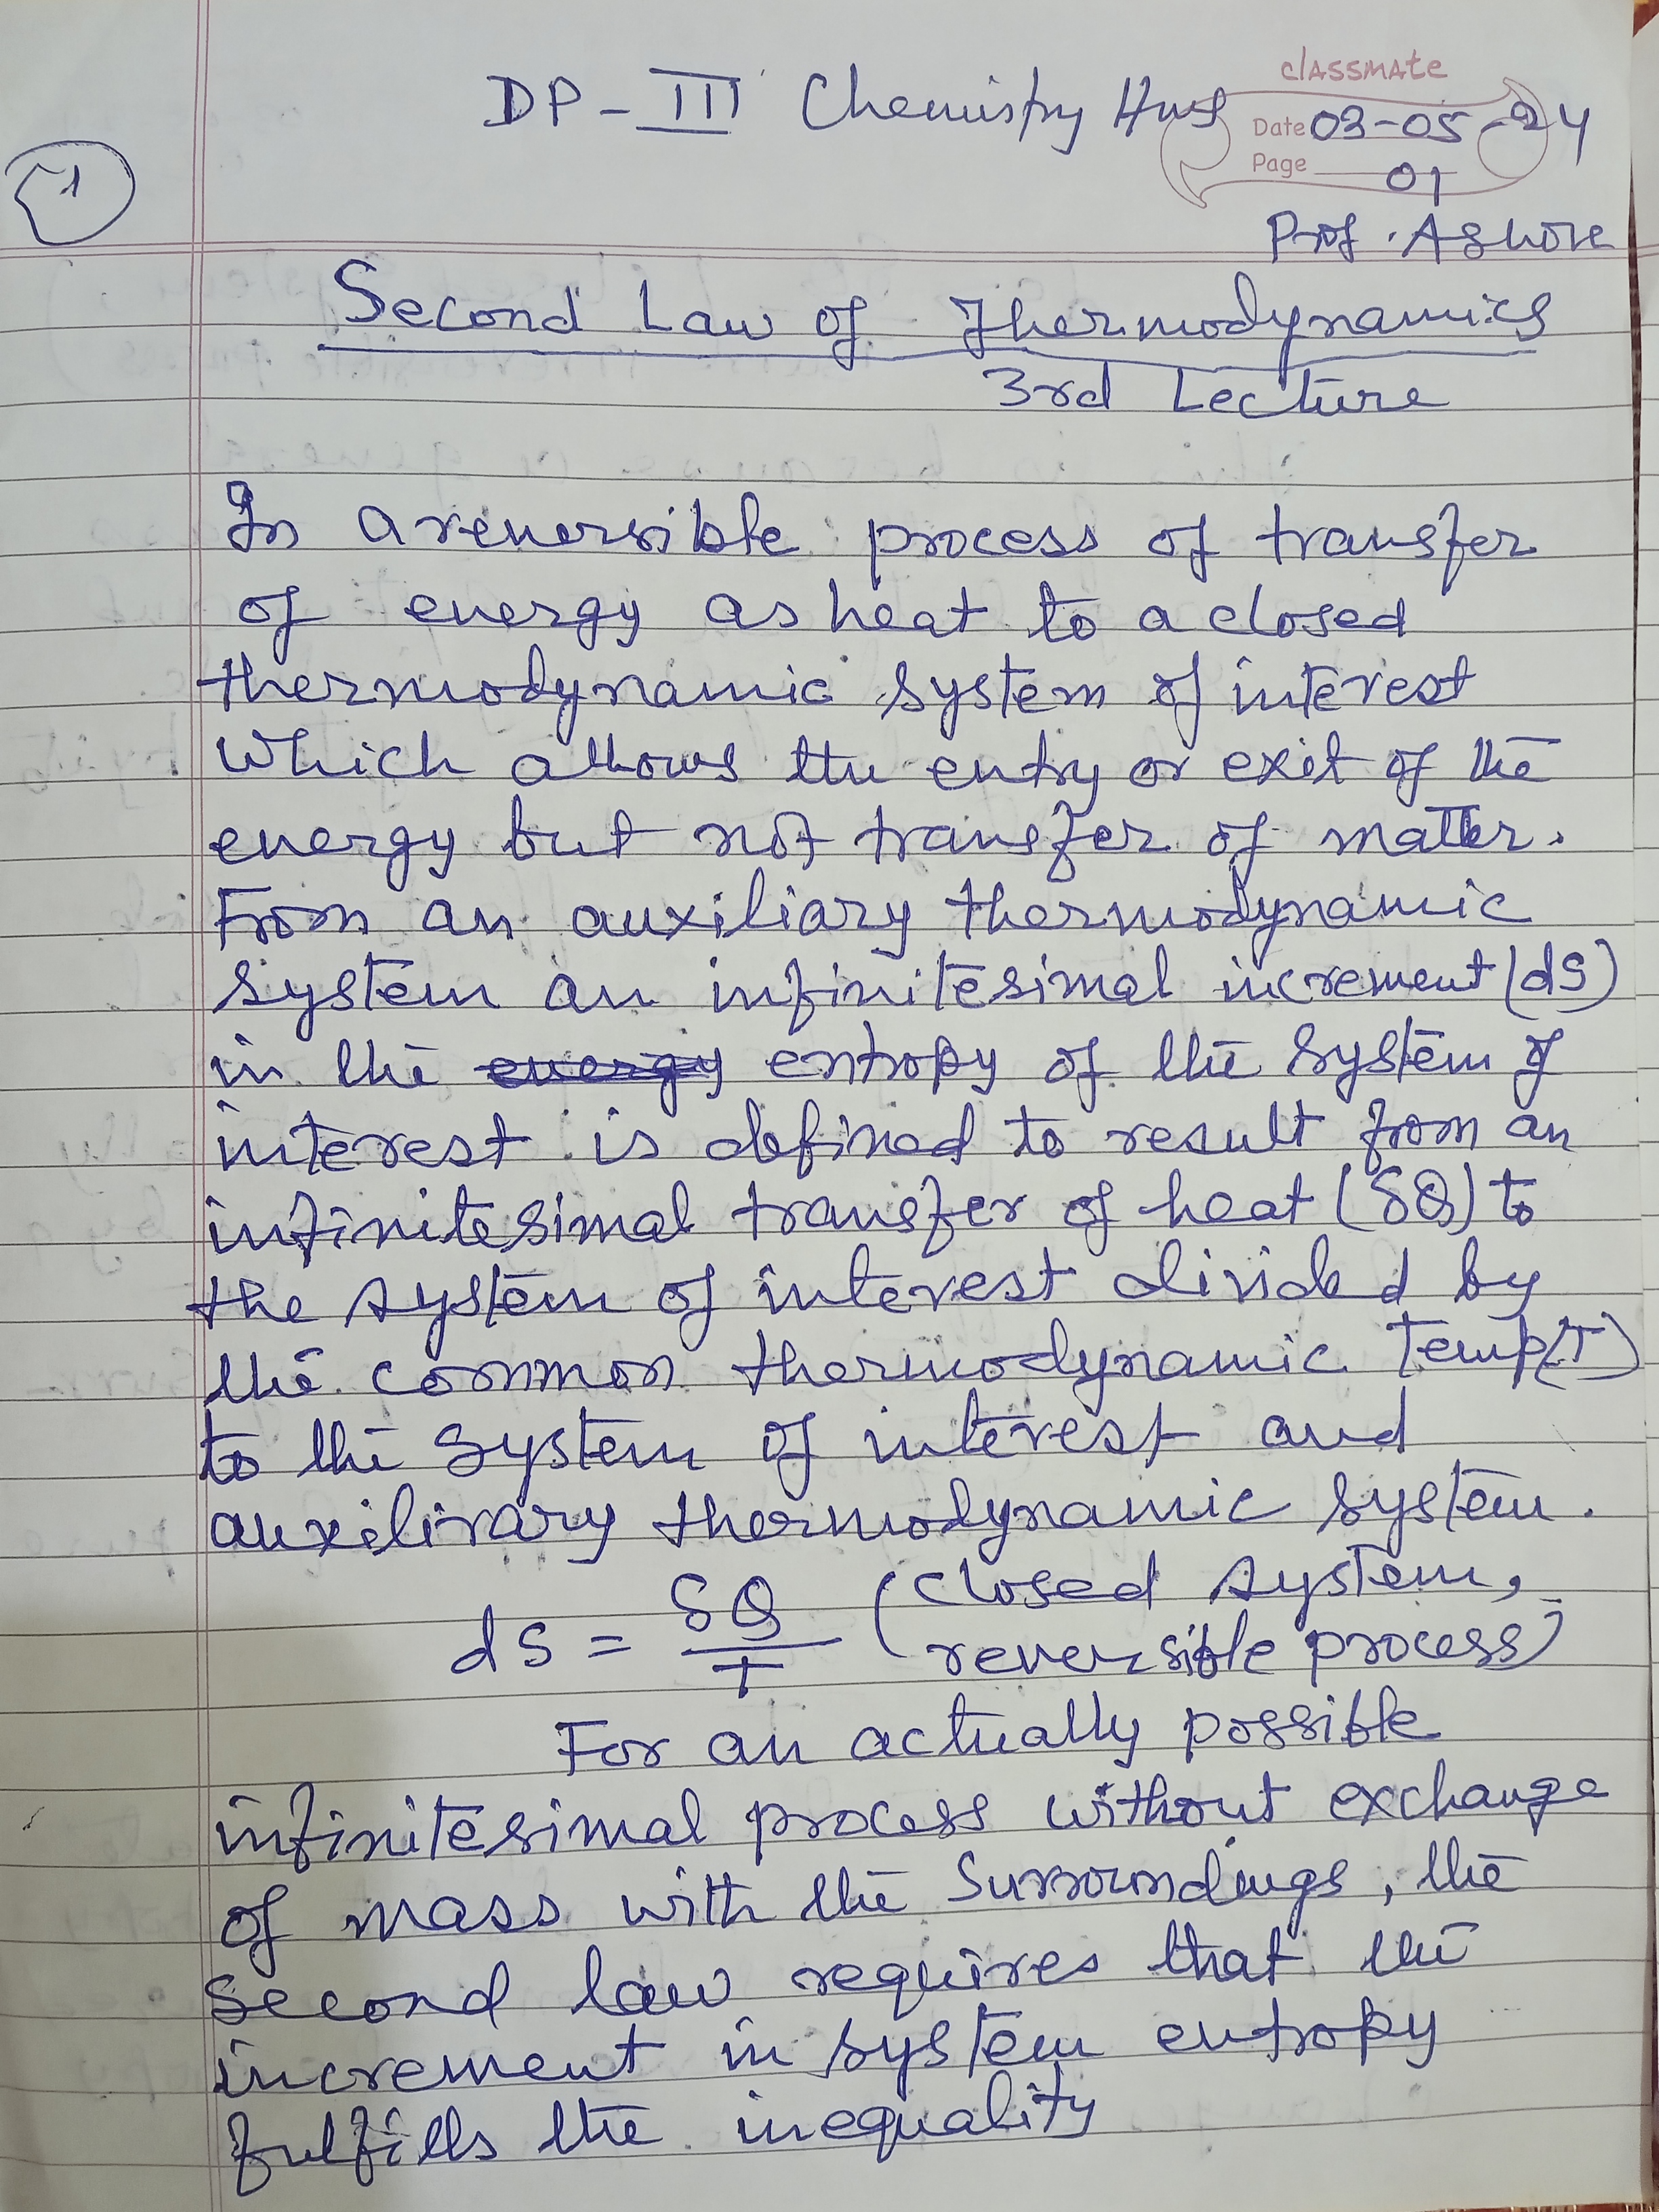 classmate
DP-III Chemistry Hns
Date 03-05-24
Page 01
1
Prof. Ashok
Second Law of Thermodynamics
3rd Lecture
In a reversible process of transfer
of energy as heat to a closed
thermodynamic system of interest
which allows the entry or exit of the
energy but not transfer of matter.
From an auxiliary thermodynamic
system an infinitesimal increment (dS)
in the energy entropy of the system of
interest is defined to result from an
infinitesimal transfer of heat (δQ) to
the system of interest divided by
the common thermodynamic temp(T)
to the system of interest and
auxilirary thermodynamic system.
dS = δQ/T (closed system,
reversible process)
For an actually possible
infinitesimal process without exchange
of mass with the surroundings, the
second law requires that the
increment in system entropy
fulfills the inequality